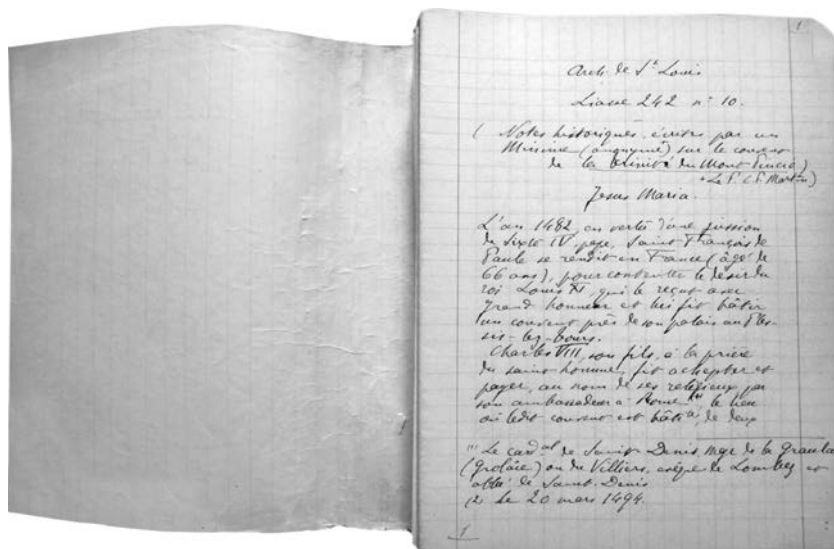 1
Arch. de St Louis
Liasse 242 n° 10.
( Notes historiques écrites par un
Minime (anonyme) sur le couvent
de la Trinité du Mont Pincio)
Le P. C. F. Martin)
Jesus Maria.
L'an 1482, en vertu d'une
de Sixte IV, pape, Saint François de
Paule se rendit en France (âgé de
66 ans), pour contenter le désir du
roi Louis XI, qui le reçut avec
grand honneur et lui fit bâtir
un couvent près de son palais au Ples-
sis-lez-Tours.
Charles VIII, son fils, à la prière
du saint homme, fit achepter et
payer, au nom de ses religieux par
son ambassadeur à Rome (1), le lieu
où ledit couvent est bâti (2), de deux
(1) Le cardal de Saint Denis Mgr de la Graula
(Grolaie) ou de Villiers, evêque de Lombez et
abbé de Saint-Denis
(2 Le 20 mars 1494.
1